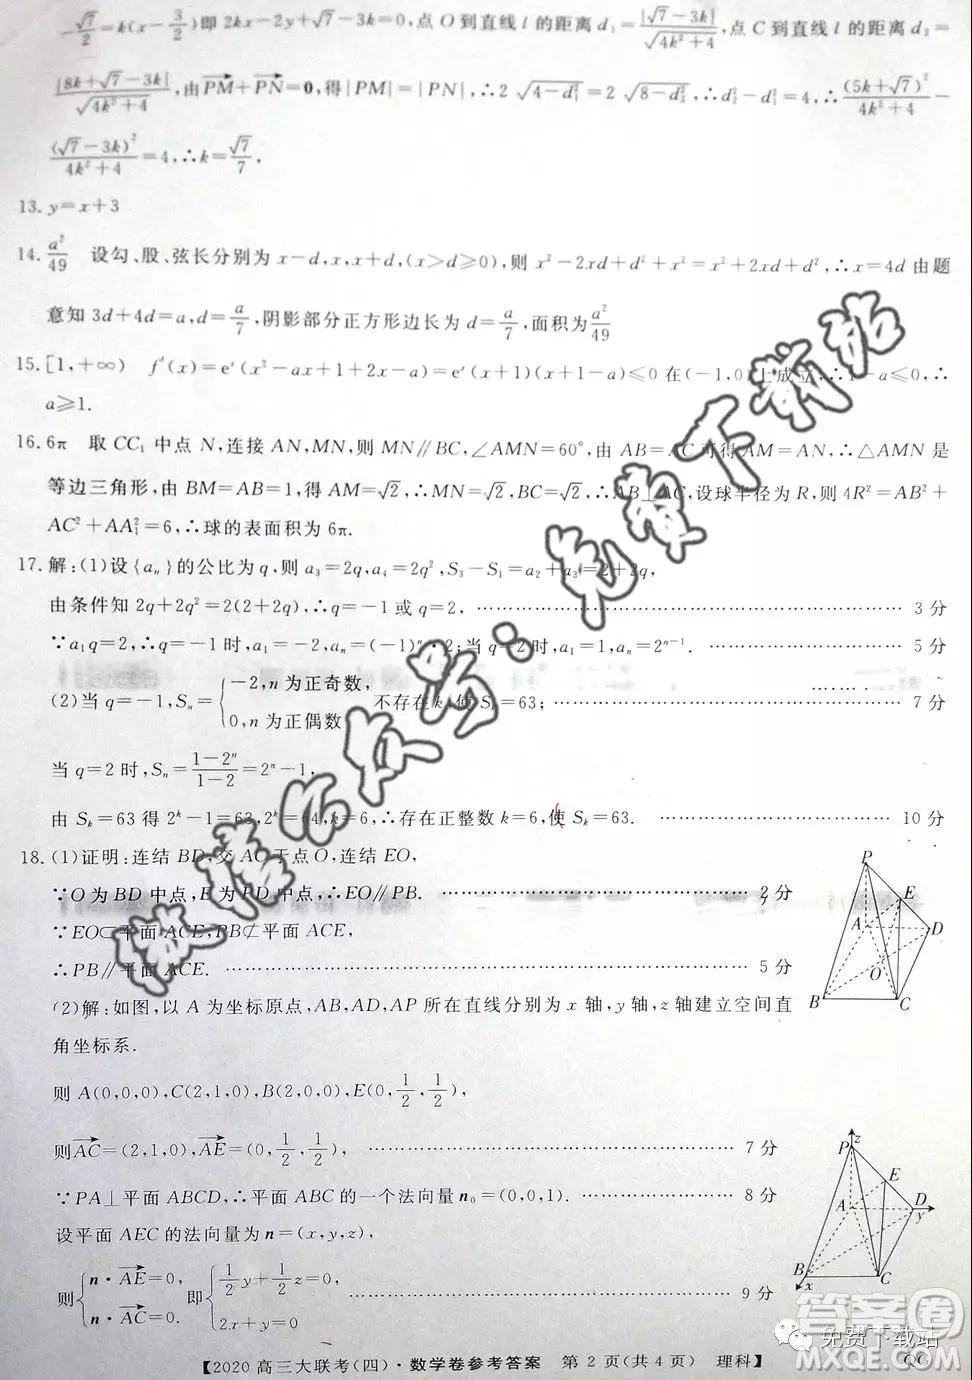 -√7/2=k(x-3/2)即2kx-2y+√7-3k=0,点O到直线l的距离d₁=|√7-3k|/√(4k²+4),点C到直线l的距离d₂=
|8k+√7-3k|/√(4k²+4),由PM+PN=0,得|PM|=|PN|,∴2√(4-d₁²)=2√(8-d₂²),∴d₂²-d₁²=4,∴(5k+√7)²/(4k²+4)-
(√7-3k)²/(4k²+4)=4,∴k=√7/7.
13.y=x+3
14.a²/49 设勾、股、弦长分别为x-d,x,x+d,(x>d≥0),则x²-2xd+d²+x²=x²+2xd+d²,∴x=4d由题
意知3d+4d=a,d=a/7,阴影部分正方形边长为d=a/7,面积为a²/49
15.[1,+∞) f′(x)=eˣ(x²-ax+1+2x-a)=eˣ(x+1)(x+1-a)≤0在(-1,0)上成立,∴1-a≤0,∴
a≥1.
16.6π 取CC₁中点N,连接AN,MN,则MN∥BC,∠AMN=60°,由AB=AC可得AM=AN,∴△AMN是
等边三角形,由BM=AB=1,得AM=√2,∴MN=√2,BC=√2,∴AB⊥AC,设球半径为R,则4R²=AB²+
AC²+AA₁²=6,∴球的表面积为6π.
17.解:(1)设{aₙ}的公比为q,则a₃=2q,a₄=2q²,S₃-S₁=a₂+a₃=2+2q,
由条件知2q+2q²=2(2+2q),∴q=-1或q=2,……3分
∵a₁q=2,∴q=-1时,a₁=-2,aₙ=(-1)ⁿ·2;当q=2时,a₁=1,aₙ=2ⁿ⁻¹.……5分
(2)当q=-1,Sₙ={-2,n为正奇数,
0,n为正偶数 不存在k,使Sₖ=63;……7分
当q=2时,Sₙ=(1-2ⁿ)/(1-2)=2ⁿ-1.
由Sₖ=63得2ᵏ-1=63,2ᵏ=64,k=6,∴存在正整数k=6,使Sₖ=63.……10分
18.(1)证明:连结BD,交AC于点O,连结EO,
∵O为BD中点,E为PD中点,∴EO∥PB.……2分
∵EO⊂平面ACE,PB⊄平面ACE,
∴PB∥平面ACE.……5分
(2)解:如图,以A为坐标原点,AB,AD,AP所在直线分别为x轴,y轴,z轴建立空间直
角坐标系.
则A(0,0,0),C(2,1,0),B(2,0,0),E(0,1/2,1/2),
则AC=(2,1,0),AE=(0,1/2,1/2),……7分
∵PA⊥平面ABCD,∴平面ABC的一个法向量n₀=(0,0,1).……8分
设平面AEC的法向量为n=(x,y,z),
则{n·AE=0,
n·AC=0. 即{1/2y+1/2z=0,
2x+y=0 ……9分
P
E
A
D
O
B
C
z
P
E
A
D
y
B
x
C
【2020高三大联考(四)·数学卷参考答案 第2页(共4页) 理科】
QG
微信公众号:免费下载站
免费下载站
答案圈
MXQE.COM